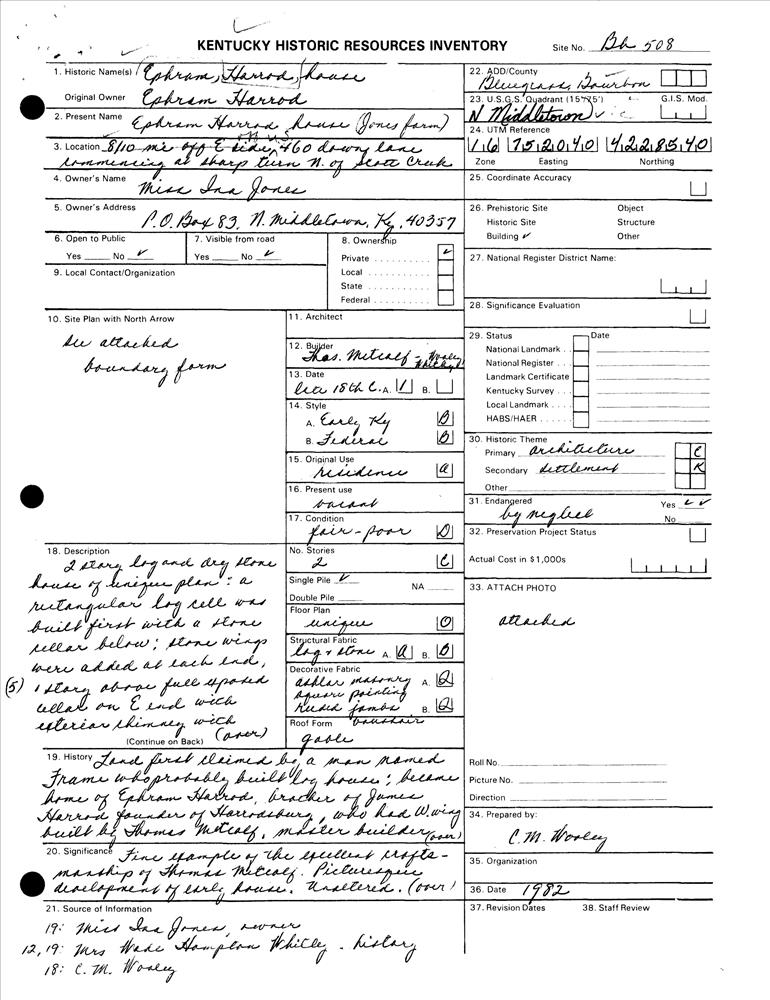 KENTUCKY HISTORIC RESOURCES INVENTORY
Site No. Bh 508
1. Historic Name(s) Ephram, Harrod, house
Original Owner Ephram Harrod
2. Present Name Ephram Harrod house (Jones farm)
3. Location 8/10 mi off E side, 460 down lane
commencing at sharp turn N. of Scott Creek
4. Owner's Name
Miss Ina Jones
5. Owner's Address
P.O. Box 83, N. Middletown, Ky, 40357
6. Open to Public
Yes No ✓
7. Visible from road
Yes No ✓
8. Ownership
Private ✓
Local
State
Federal
9. Local Contact/Organization
10. Site Plan with North Arrow
See attached
boundary form
11. Architect
12. Builder
Thos. Metcalf - Wooley
Whitley
13. Date
late 18th C. A. 1 B.
14. Style
A. Early Ky B
B. Federal B
15. Original Use
residence a
16. Present use
vacant
17. Condition
fair-poor D
18. Description
2 story log and dry stone
house of unique plan: a
rectangular log cell was
built first with a stone
cellar below; stone wings
were added at each end,
(5) 1 story above full exposed
cellar on E end with
exterior chimney with
(Continue on Back) (over)
No. Stories
2 C
Single Pile ✓
NA
Double Pile
Floor Plan
unique O
Structural Fabric
log & stone A. A B. B
Decorative Fabric
ashlar masonry A. Q
square pointing
reeded jambs B. Q
Roof Form
gable
19. History Land first claimed by a man named
Frame who probably built log house; became
home of Ephram Harrod, brother of James
Harrod founder of Harrodsburg, who had W. wing
built by Thomas Metcalf, master builder (over)
20. Significance Fine example of the excellent crafts-
manship of Thomas Metcalf. Picturesque
development of early house. Unaltered. (over)
21. Source of Information
19: Miss Ina Jones, owner
12, 19: Mrs Wade Hampton Whitley - history
18: C. M. Wooley
22. ADD/County
Bluegrass, Bourbon
23. U.S.G.S. Quadrant (15'/7.5') G.I.S. Mod.
N Middletown
24. UTM Reference
16 752040 4228540
Zone Easting Northing
25. Coordinate Accuracy
26. Prehistoric Site Object
Historic Site Structure
Building ✓ Other
27. National Register District Name:
28. Significance Evaluation
29. Status Date
National Landmark
National Register
Landmark Certificate
Kentucky Survey
Local Landmark
HABS/HAER
30. Historic Theme
Primary architecture C
Secondary settlement K
Other
31. Endangered Yes ✓✓
by neglect No
32. Preservation Project Status
Actual Cost in $1,000s
33. ATTACH PHOTO
attached
Roll No.
Picture No.
Direction
34. Prepared by:
C. M. Wooley
35. Organization
36. Date 1982
37. Revision Dates 38. Staff Review